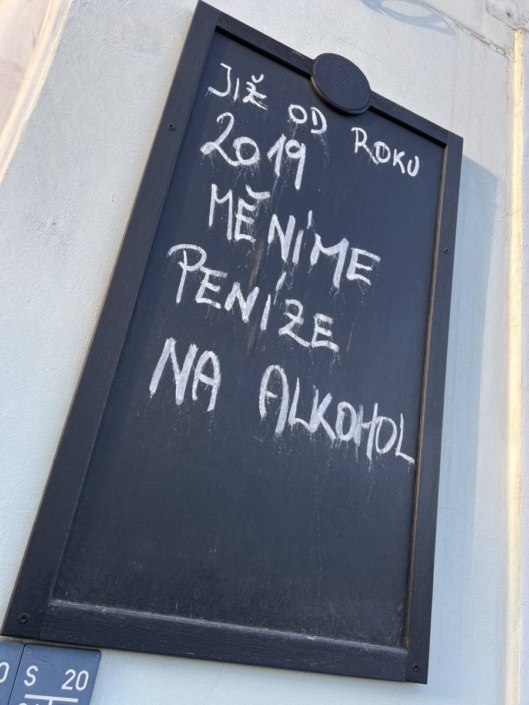 JIŽ OD ROKU
2019
MĚNÍME
PENÍZE
NA ALKOHOL
0
S 20